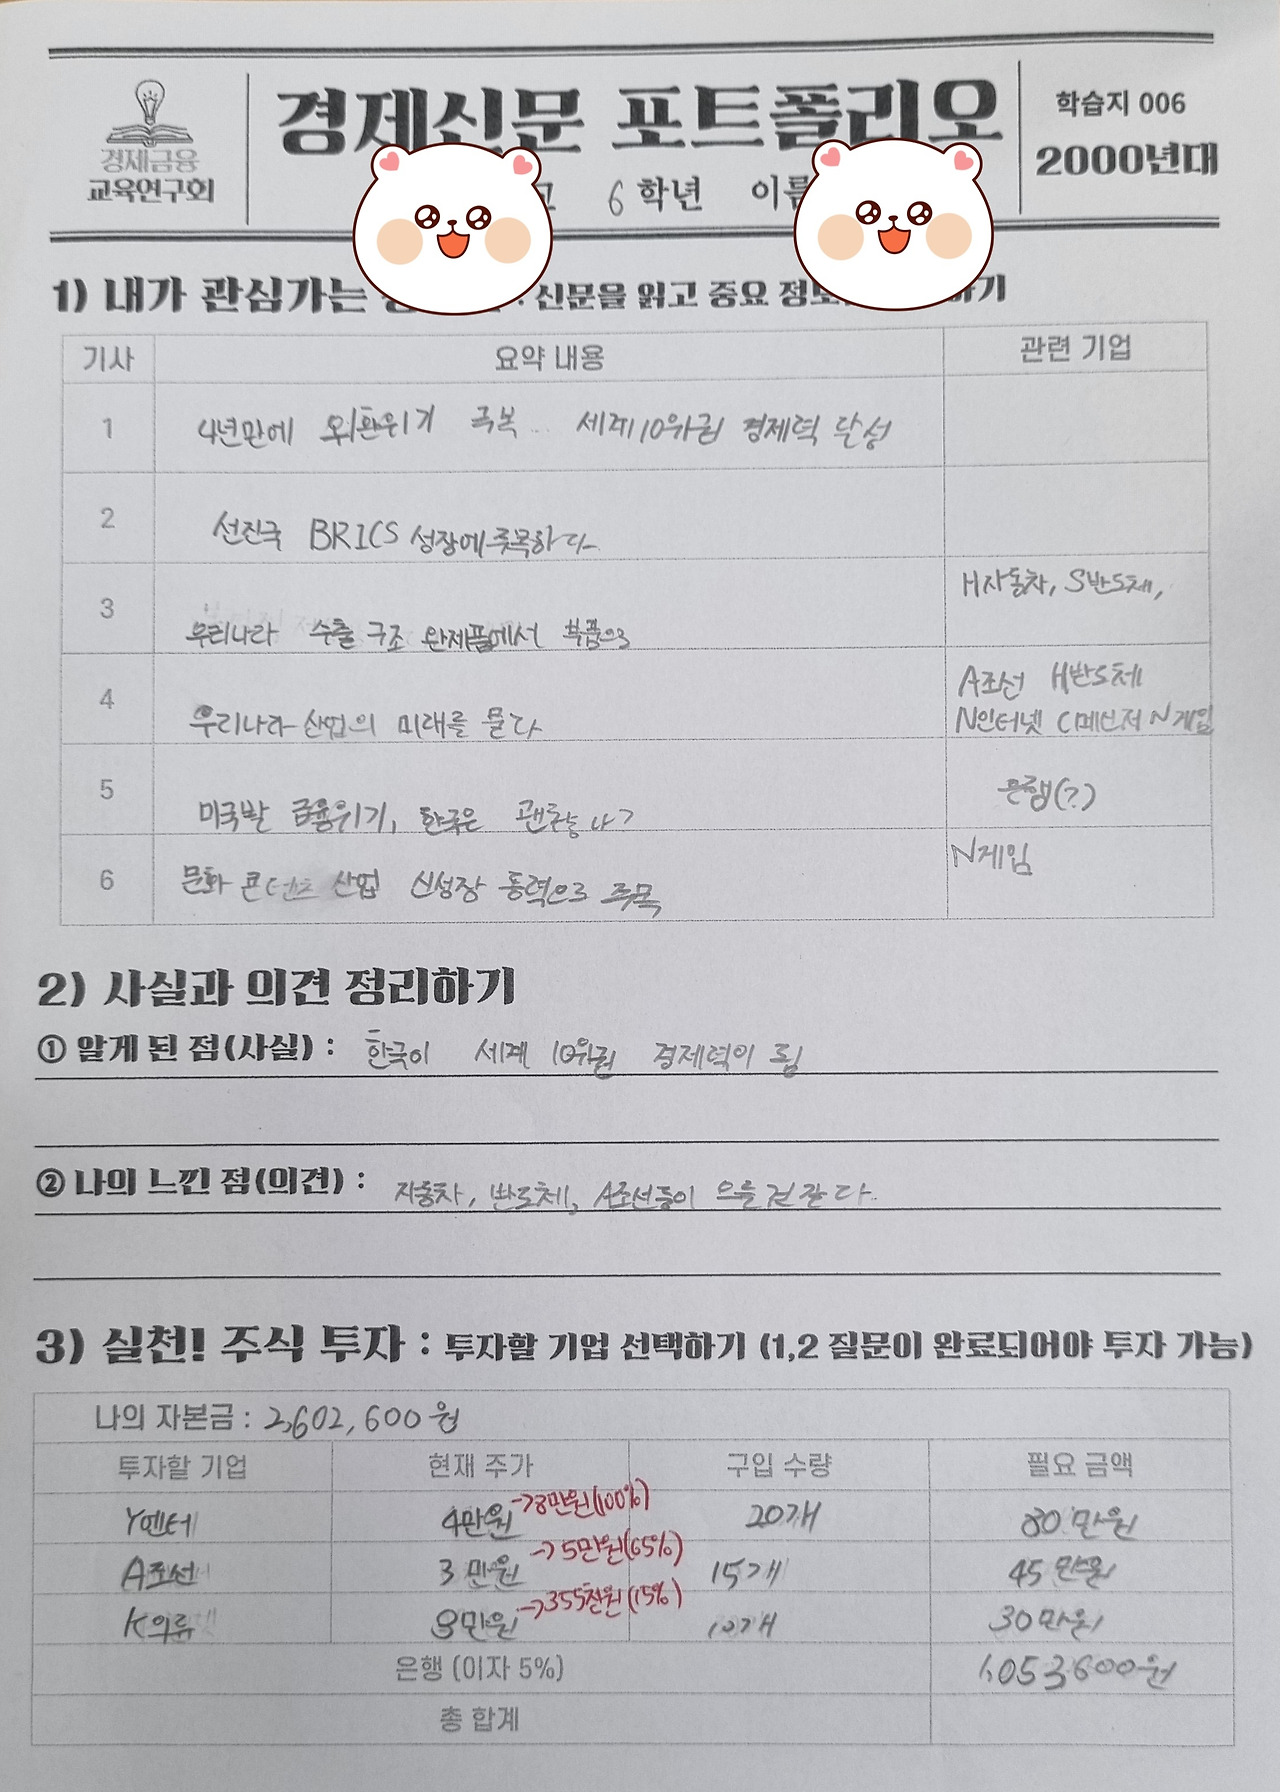 경제금융
교육연구회
경제신문 포트폴리오
6 학년 이름
학습지 006
2000년대
1) 내가 관심가는 : 신문을 읽고 중요 정보
기사 요약 내용 관련 기업
1 4년만에 외환위기 극복... 세계10위권 경제력 달성
2 선진국 BRICS 성장에 주목하다
3 우리나라 수출 구조 완제품에서 부품으로 H자동차, S반도체,
4 우리나라 산업의 미래를 묻다 A조선 H반도체
N인터넷 C메신저 N게임
5 미국발 금융위기, 한국은 괜찮나? 은행(?)
6 문화 콘텐츠 산업 신성장 동력으로 주목 N게임
2) 사실과 의견 정리하기
① 알게 된 점(사실) : 한국이 세계 10위권 경제력이 됨
② 나의 느낀 점(의견) : 자동차, 반도체, A조선등이 으를것 같다.
3) 실천! 주식 투자 : 투자할 기업 선택하기 (1,2 질문이 완료되어야 투자 가능)
나의 자본금 : 2,602,600원
투자할 기업 현재 주가 구입 수량 필요 금액
Y엔터 4만원 →8만원(100%) 20개 80만원
A조선 3만원 →5만원(65%) 15개 45만원
K의류 3만원 →355천원(15%) 10개 30만원
은행 (이자 5%) 1,053,600원
총 합계